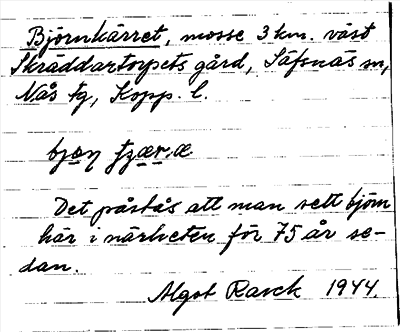 Björnkärret, mosse 3 km. väst
Skräddartorpets gård, Säfsnäs sn,
Nås tg, Kopp. l.
Det påstås att man sett björn
här i närheten för 75 år se-
dan.
Algot Ranck 1944.